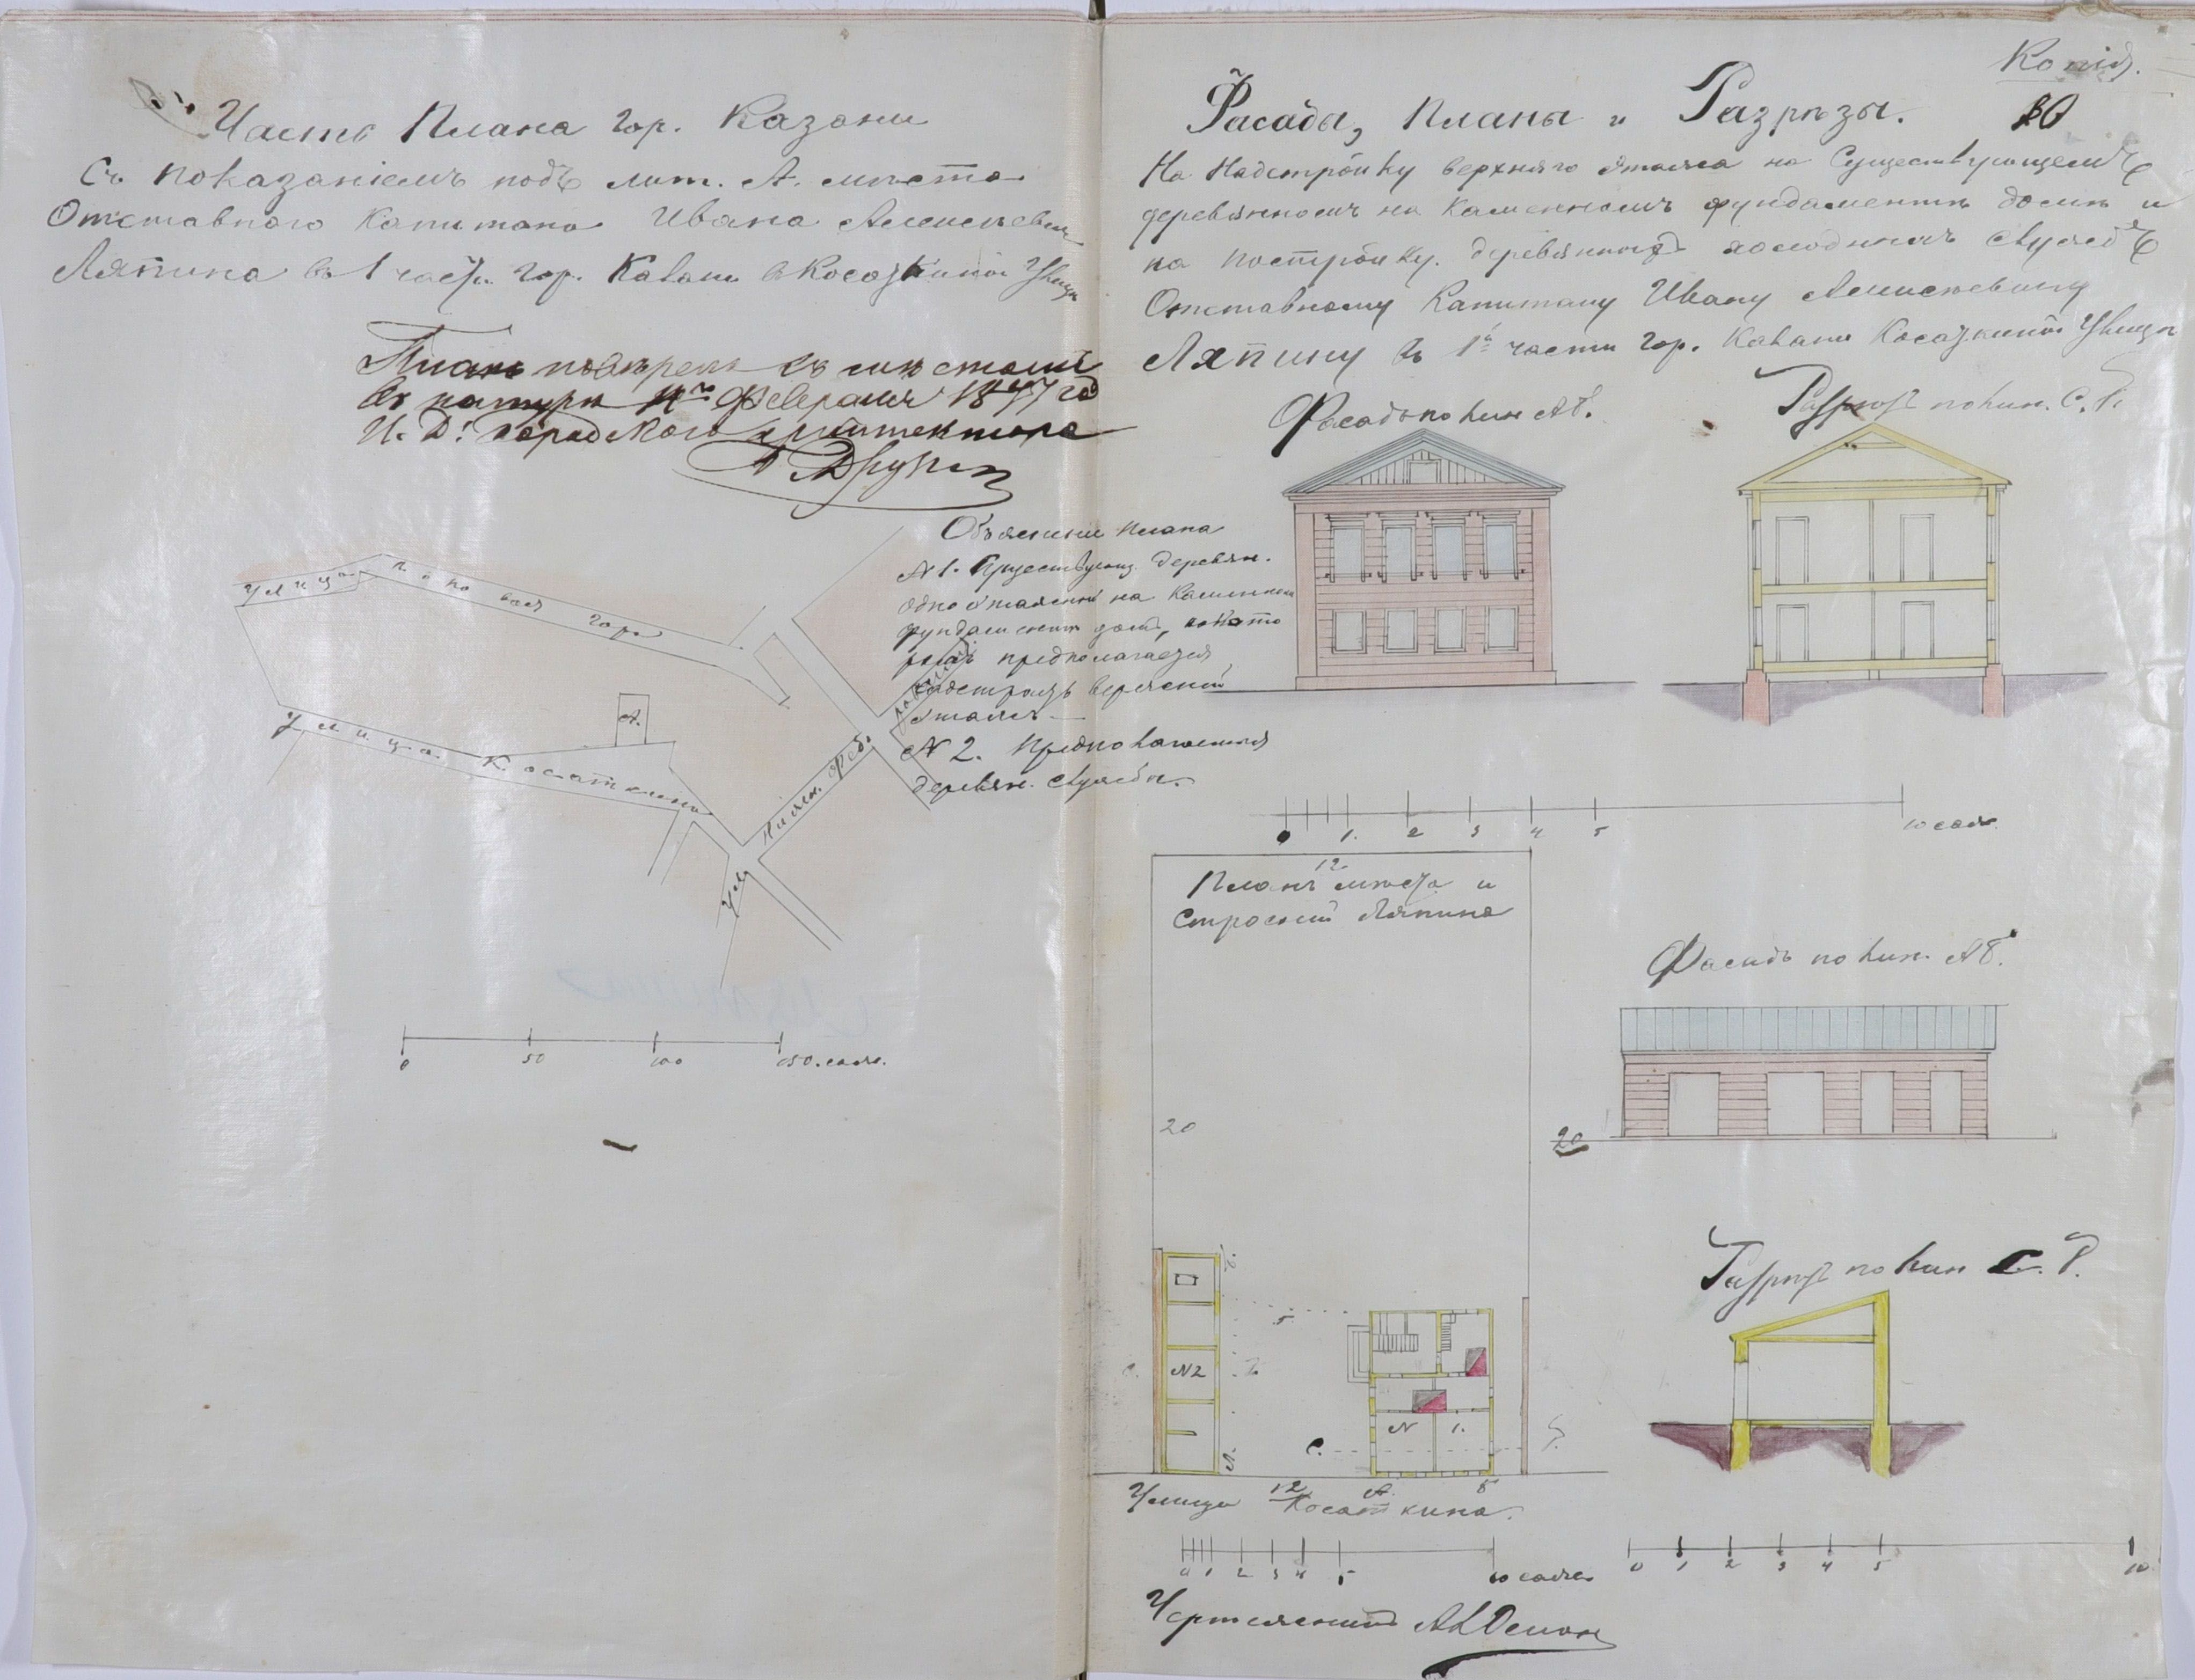 Часть Плана гор. Казани
Съ показаніемъ подъ лит. А. мѣста
Отставного Капитана Ивана Алексѣевич
Ляпина въ 1 части гор. Казани въ Косаткиной Улицѣ
Планъ повѣренъ съ мѣстомъ
въ натурѣ Февраля 1877 год
И. Д. Городского Архитектора
Объясненіе плана
N 1. Существующ. деревян.
одноэтажный на каменном
фундаментѣ домъ, на кото
ромъ предполагается
надстроить верхній
этажъ
N 2. Предположенныя
деревян. службы.
Улица
Попо вая гора
А.
Улица. Косаткина
Ниж. Фед.
Ул.
0 50 100 150. саж.
Копія.
20
Фасады, Планы и Разрѣзы.
На Надстройку верхняго этажа на Существующемъ
деревянномъ на каменномъ фундаментѣ домѣ и
на постройку деревянныхъ холодныхъ службъ
Отставному Капитану Ивану Алексѣевичу
Ляпину въ 1й части гор. Казани Косаткиной Улицѣ
Фасадъ по лин АБ.
Разрѣзъ по лин. С. Д.
0 1. 2 3 4 5 10 саж.
12.
Планъ мѣста и
Строеній Ляпина
Фасадъ по лин. АБ.
20
20
Разрѣзъ по лин С. Д.
5.
N2
N 1.
С.
А.
12 А Б
Улица Косаткина.
0 1 2 3 4 5 10 саже
0 1 2 3 4 5 10
Чертежникъ